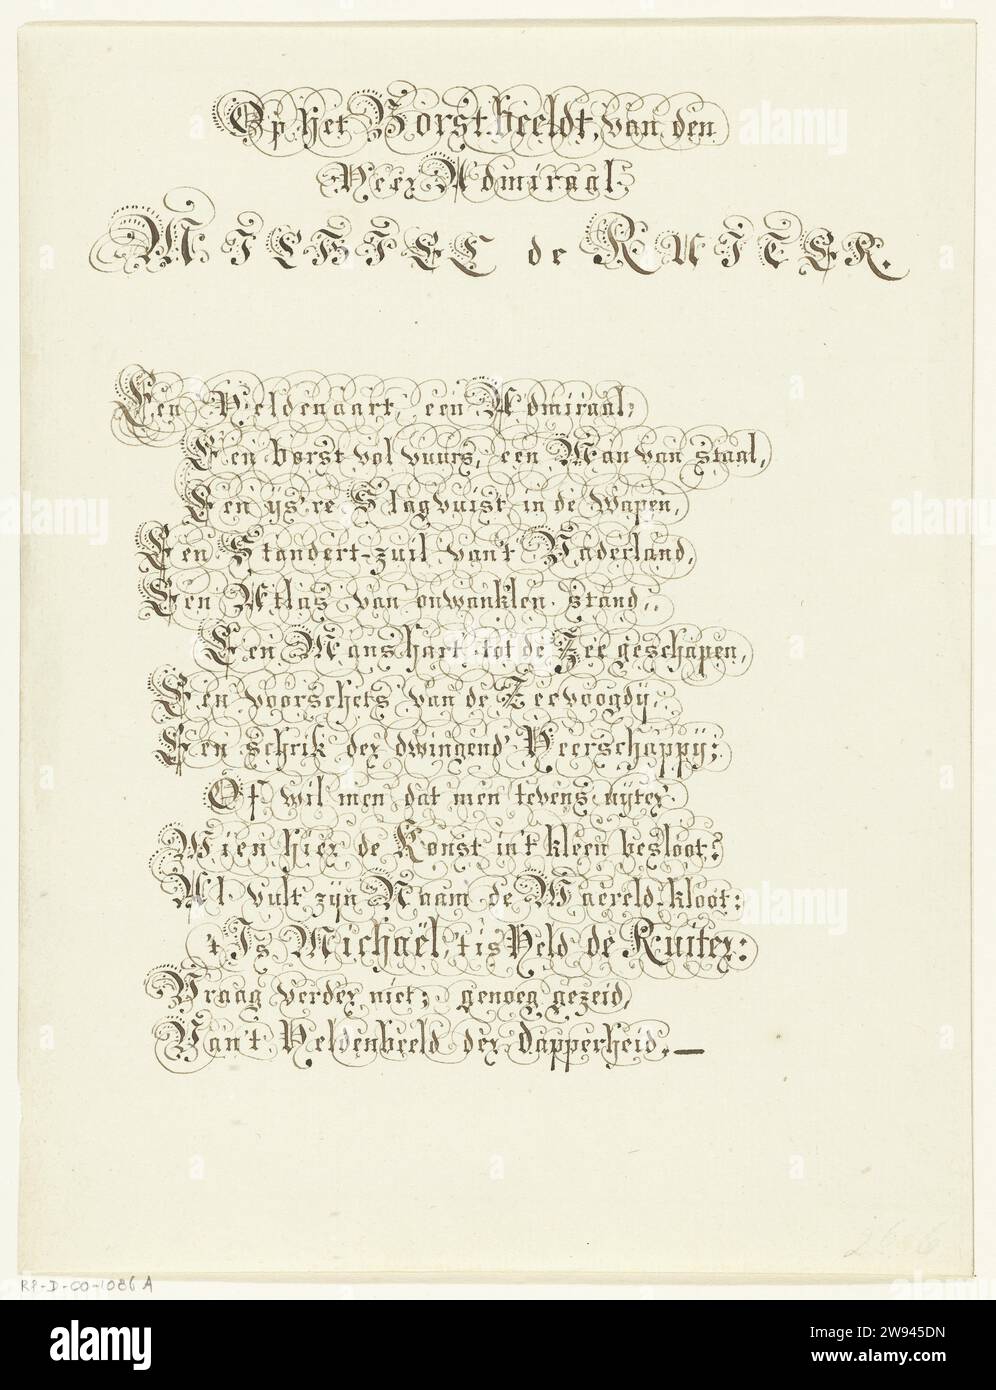 Op het Borstbeeldt, van den
Heer Admiraal.
MICHIEL de RUITER.
Een Heldenaart, een Admiraal,
Een borst vol vuurs, een Man van staal,
Een ijs're Slagvuist in de wapen,
Een Standert-zuil van't Vaderland,
Een Atlas van onwanklen stand,
Een Mans hart tot de Zee geschapen,
Een voorschets van de Zeevoogdij,
Een schrik der dwingend' Heerschappij;
Of wil men dat men tevens uyter
Wien hier de Konst in't kleen besloot?
Al vult zijn Naam de Waereld-kloot:
't Is Michaël, 't is Held de Ruiter:
Vraag verder niet; genoeg gezeid,
Van't Heldenbeeld der dapperheid.—
2606
RP-D-00-1086 A
alamy
Image ID: 2W945DN
www.alamy.com